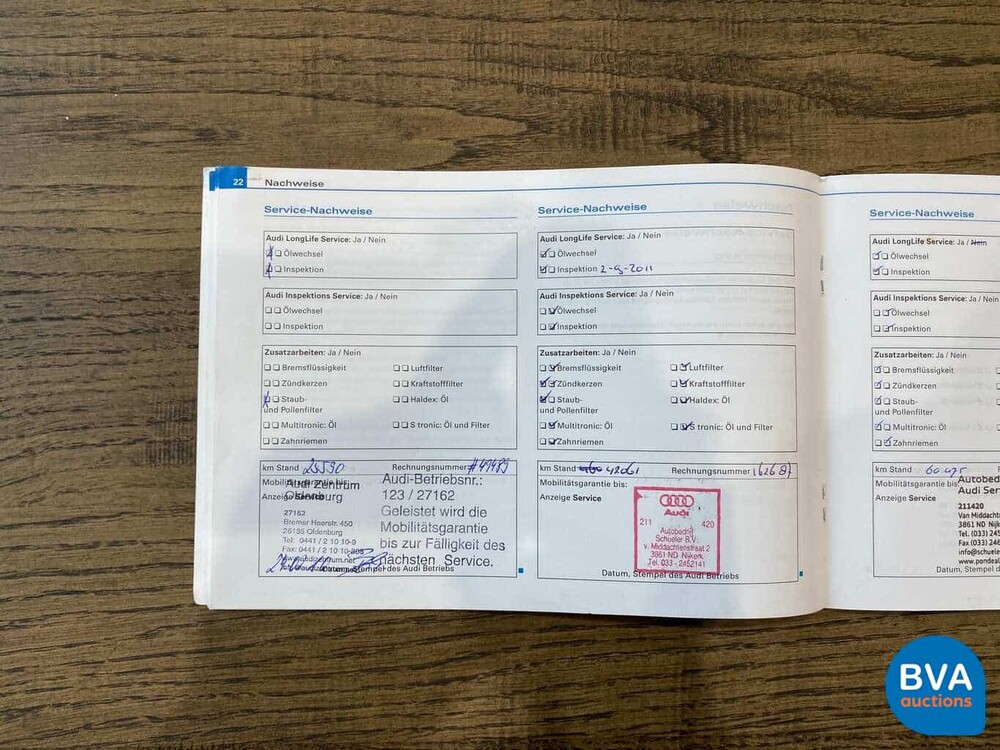 22
Nachweise
Service-Nachweise
Audi LongLife Service: Ja / Nein
Ölwechsel
Inspektion
Audi Inspektions Service: Ja / Nein
Ölwechsel
Inspektion
Zusatzarbeiten: Ja / Nein
Bremsflüssigkeit
Luftfilter
Zündkerzen
Kraftstofffilter
Staub-
und Pollenfilter
Haldex: Öl
Multitronic: Öl
S tronic: Öl und Filter
Zahnriemen
km Stand
Rechnungsnummer #49489
Mobilitätsgarantie bis:
Anzeige Service
Audi Zentrum
Oldenburg
27162
Bremer Heerstr. 450
26135 Oldenburg
Tel: 0441 / 2 10 10-9
Fax: 0441 / 2 10 10-208
Audi-Betriebsnr.:
123 / 27162
Geleistet wird die
Mobilitätsgarantie
bis zur Fälligkeit des
nächsten Service.
Datum, Stempel des Audi Betriebs
Service-Nachweise
Audi LongLife Service: Ja / Nein
Ölwechsel
Inspektion 2-9-2011
Audi Inspektions Service: Ja / Nein
Ölwechsel
Inspektion
Zusatzarbeiten: Ja / Nein
Bremsflüssigkeit
Luftfilter
Zündkerzen
Kraftstofffilter
Staub-
und Pollenfilter
Haldex: Öl
Multitronic: Öl
S tronic: Öl und Filter
Zahnriemen
km Stand 42061
Rechnungsnummer 162687
Mobilitätsgarantie bis:
Anzeige Service
Audi
211 420
Autobedrijf
Schueler B.V.
v. Middachtenstraat 2
3861 ND Nijkerk
Tel. 033 - 2452141
Datum, Stempel des Audi Betriebs
Service-Nachweise
Audi LongLife Service: Ja / Nein
Ölwechsel
Inspektion
Audi Inspektions Service: Ja / Nein
Ölwechsel
Inspektion
Zusatzarbeiten: Ja / Nein
Bremsflüssigkeit
Zündkerzen
Staub-
und Pollenfilter
Multitronic: Öl
Zahnriemen
km Stand
Mobilitätsgarantie bis:
Anzeige Service
Autobed
Audi Ser
211420
Van Middachte
3861 ND Nijk
Tel. (033) 245
Fax (033) 246
info@schuele
www.pondeal
Datum, Stem
BVA
auctions